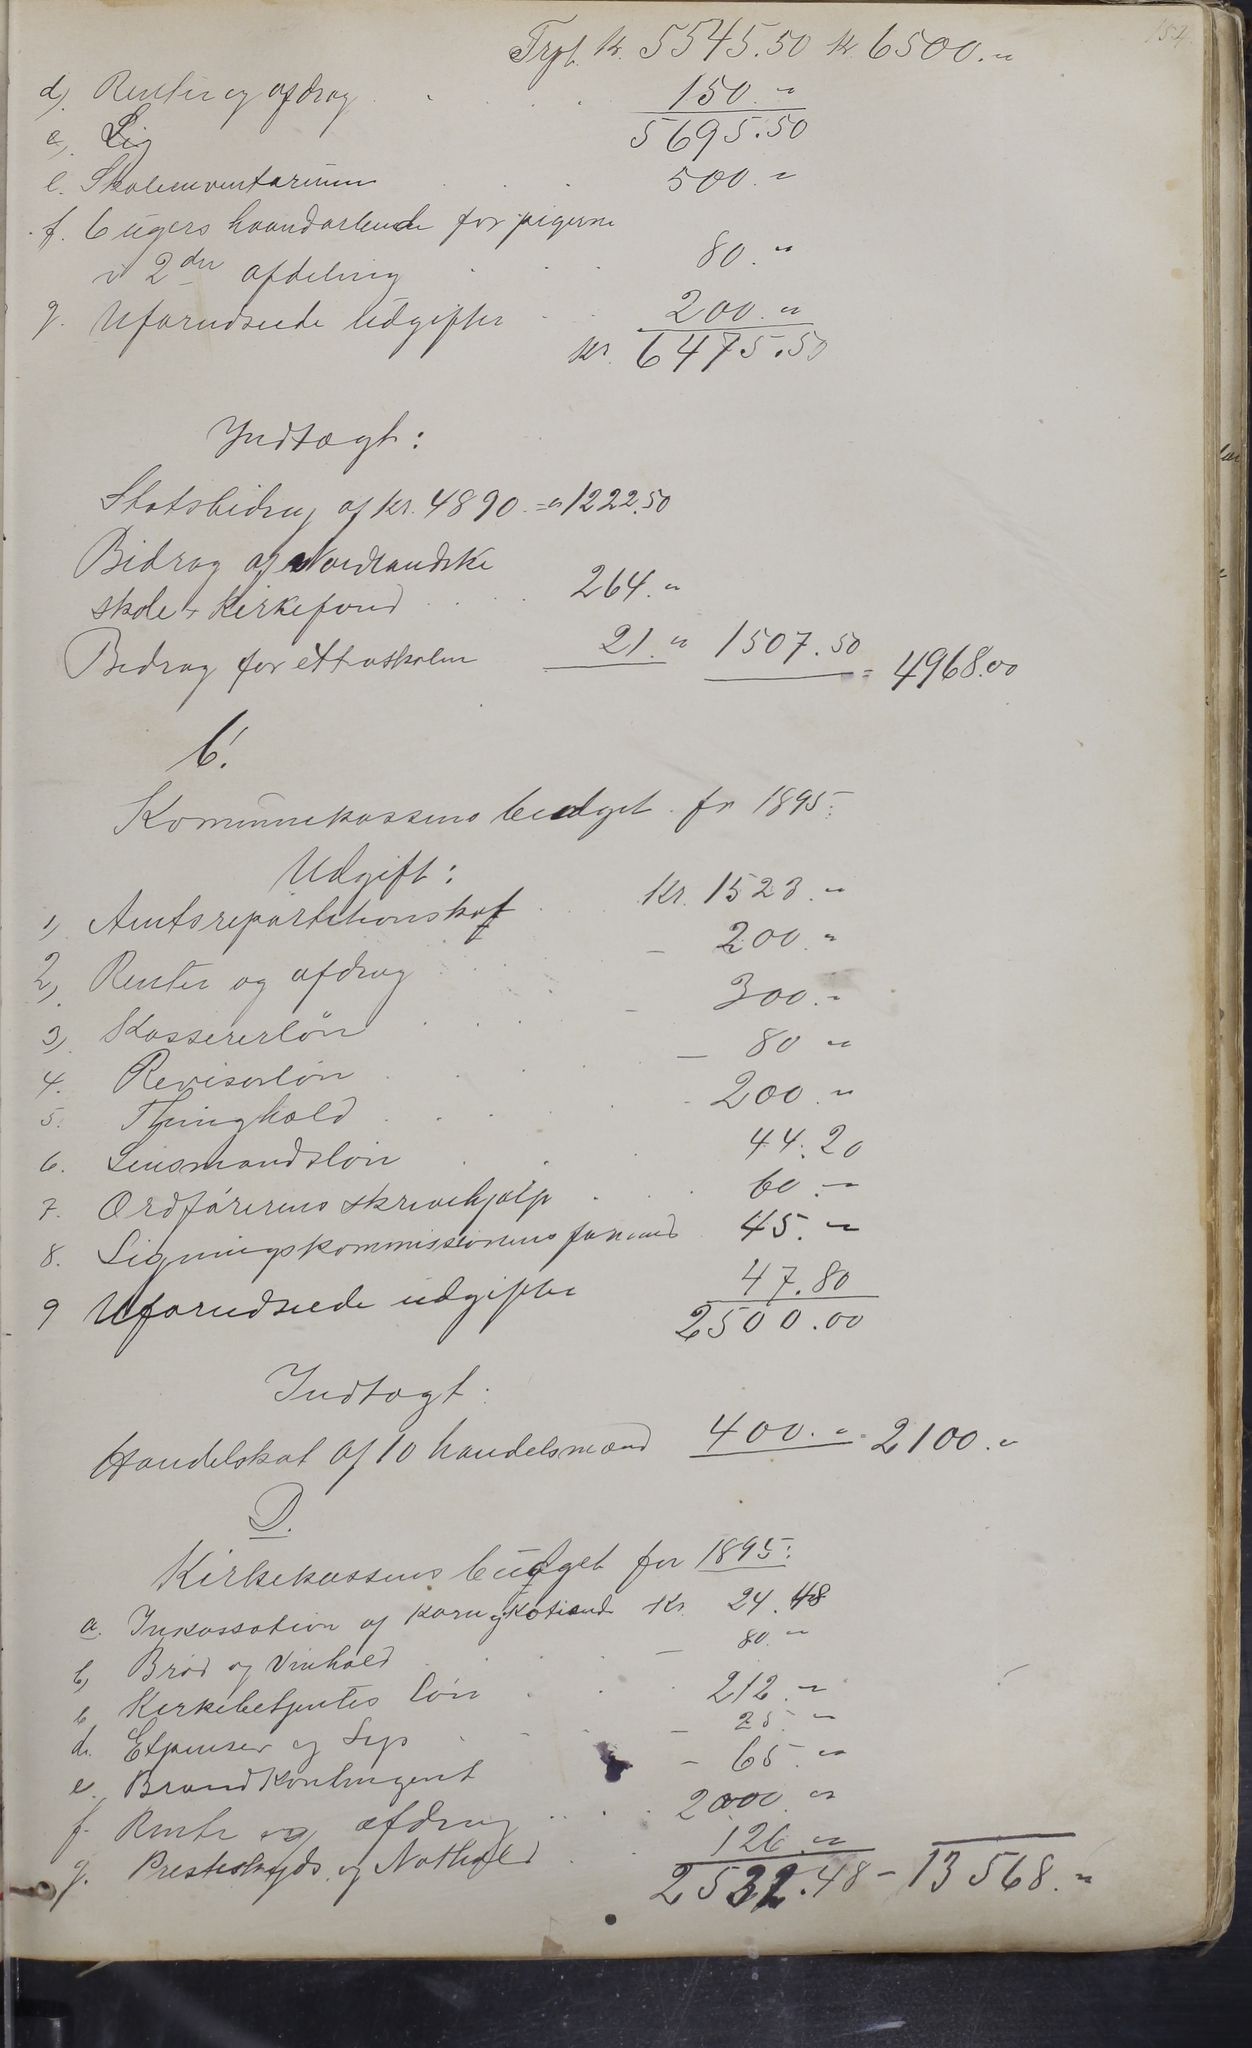 154.
Trpt. kr. 5545.50 kr 6500.„
d). Renter og afdrag . . . 150.„
5695.50
e). Lig
e. Skoleinventarium . . . 500.„
f. 6 ugers haandarbeide for pigerne
i 2den afdeling . . . 80.„
g. Uforudseede Udgifter . . 200.„
kr. 6475.50
Indtægt:
Statsbidrag af kr. 4890.„ = 1222.50
Bidrag af Nordlandske
skole & Kirkefond . . . 264.„
Bidrag for ettraskolen 21.„ 1507.50 = 4968.00
C.
Kommunekassens budget for 1895:
Udgift:
1). Amtsrepartitionskat . . kr. 1523.„
2). Renter og afdrag . . . – 200.„
3). Kassererløn . . . – 300.„
4. Revisorløn . . . – 80 „
5. Thinghold . . . - 200.„
6. Lensmandsløn . . . 44.20
7. Ordførerens skrivehjælp . . . 60.–
8. Ligningskommissionens formand 45.„
9 Uforudseede udgifter 47.80
2500.00
Indtægt:
Handelskat af 10 handelsmænd 400.„ = 2100.„
D.
Kirkekassens budget for 1895:
a. Inkassation af korn og Kotiende Kr. 24.48
b, Brød og Vinhold . . . – 80.„
c, Kirkebetjentes løn . . . 212.„
d. Expenser og Lys . . . – 25.„
e. Brandkontingent – 65.„
f. Rente og afdrag . . . . 2000.„
g. Presteskyds og Nathold . . 126.„
2532.48 – 13568.„